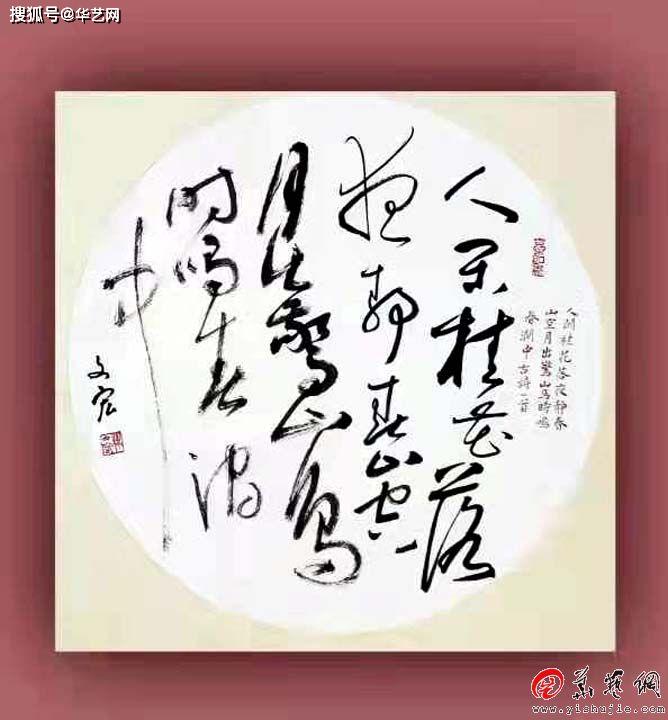 搜狐号@华艺网
人闲桂花落
夜静春山空
月出惊山鸟
时鸣春涧
中
人闲桂花落夜静春
山空月出惊山鸟时鸣
春涧中古诗一首
文宏
華藝網
www.yishujie.com